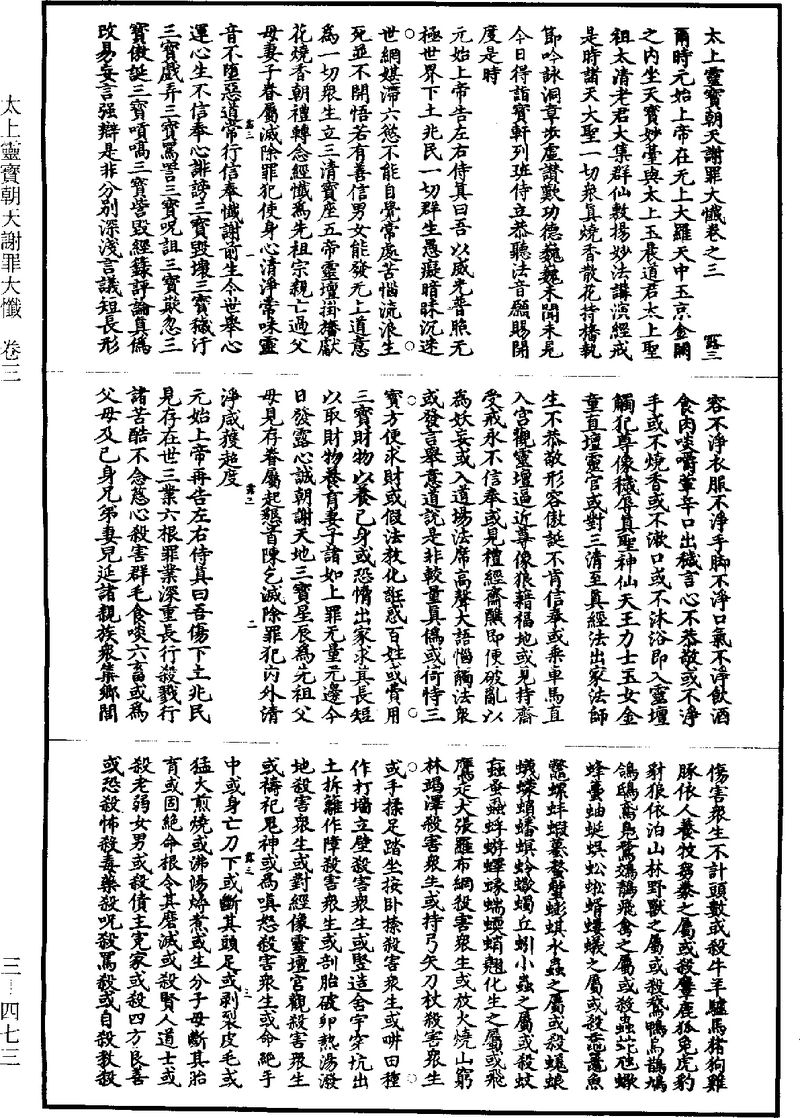 太上靈寶朝天謝罪大懺 卷三
三—四七三
太上靈寶朝天謝罪大懺卷之三 露三
爾時元始上帝在无上大羅天中玉京金闕
之内坐天寶妙臺與太上玉晨道君太上聖
祖太清老君大集群仙敷揚妙法講演經戒
是時諸天大聖一切衆真燒香散花持旛執
節吟詠洞章步虛讚歎功德巍巍未聞未見
今日得詣寶軒列班侍立恭聽法音願賜開
度是時
元始上帝告左右侍真曰吾以威光普照无
極世界下土兆民一切群生愚癡暗昧沉迷
世網媒滯六慾不能自覺常處苦惱流浪生
死並不開悟若有善信男女能發无上道意
為一切衆生立三清寶座五帝靈壇掛旛獻
花燒香朝禮轉念經懺為先祖宗親亡過父
母妻子眷屬滅除罪犯使身心清淨常味靈
音不墮惡道常行信奉懺謝前生今世舉心
運心生不信奉心誹謗三寶毀壞三寶穢汙
三寶戲弄三寶罵詈三寶呪詛三寶欺忽三
寶傲誕三寶嗔喝三寶訾毀經籙評論真僞
改易妄言强辯是非分别深淺言議短長形
容不淨衣服不淨手脚不淨口氣不淨飲酒
食肉啖嚼葷辛口出穢言心不恭敬或不淨
手或不燒香或不漱口或不沐浴即入靈壇
觸犯尊像穢辱真聖神仙天王力士玉女金
童直壇靈官或對三清至真經法出家法師
生不恭敬形容傲誕不肯信奉或乘車馬直
入宫觀靈壇逼近尊像狼藉福地或見持齋
受戒永不信奉或見禮經齋醮即便破亂以
為妖妄或入道場法席高聲大語惱觸法衆
或發言舉意道說是非較量真僞或倚恃三
寶方便求財或假法教化誑惑百姓或費用
三寶財物以養己身或恐懦出家求其長短
以取財物養育妻子諸如上罪无量无邊今
日發露心誠朝謝天地三寶星辰為先祖父
母見存眷屬起懇首陳乞滅除罪犯内外清
淨咸獲超度
元始上帝再告左右侍真曰吾傷下土兆民
見存在世三業六根罪業深重長行殺戮行
諸苦酷不念慈心殺害群毛食啖六畜或為
父母及己身兄弟妻兒延諸親族衆集鄉閭
傷害衆生不計頭數或殺牛羊驢馬猪狗雞
豚依人養牧芻豢之屬或殺麞鹿狐兔虎豹
豺狼依泊山林野獸之屬或殺鵞鴨烏鵲鳩
鴿鴟鳶鳧鷺鴻鵠飛禽之屬或殺蟲蛇虺蠍
蜂蠆蚰蜒蜈蚣蜥蜴螻蟻之屬或殺黿鼉魚
鱉螺蚌蝦蟇螯蟹蟛蜞水蟲之屬或殺蜣蜋
蟻蠓蛸蟠螟蛉蠍蠋丘蚓小蟲之屬或殺蚊
蝱蚤蝨蜉蝣蟬蝝蠕蝡蛸翹化生之屬或飛
鷹走犬張羅布網殺害衆生或放火燒山窮
林竭澤殺害衆生或持弓矢刀杖殺害衆生
或手揉足踏坐按卧捺殺害衆生或畊田種
作打墻立壁殺害衆生或豎造舍宇穿坑出
土拆籬作障殺害衆生或剖胎破卵熱湯潑
地殺害衆生或對經像靈壇宫觀殺害衆生
或禱祀鬼神或為嗔怒殺害衆生或命絶手
中或身亡刀下或斷其頭足或剥裂皮毛或
猛火煎燒或沸湯燖煮或生分子母斷其胎
育或固絶命根令其磨滅或殺賢人道士或
殺老弱女男或殺債主冤家或殺四方良善
或恐殺怖殺毒藥殺呪殺罵殺或自殺教殺